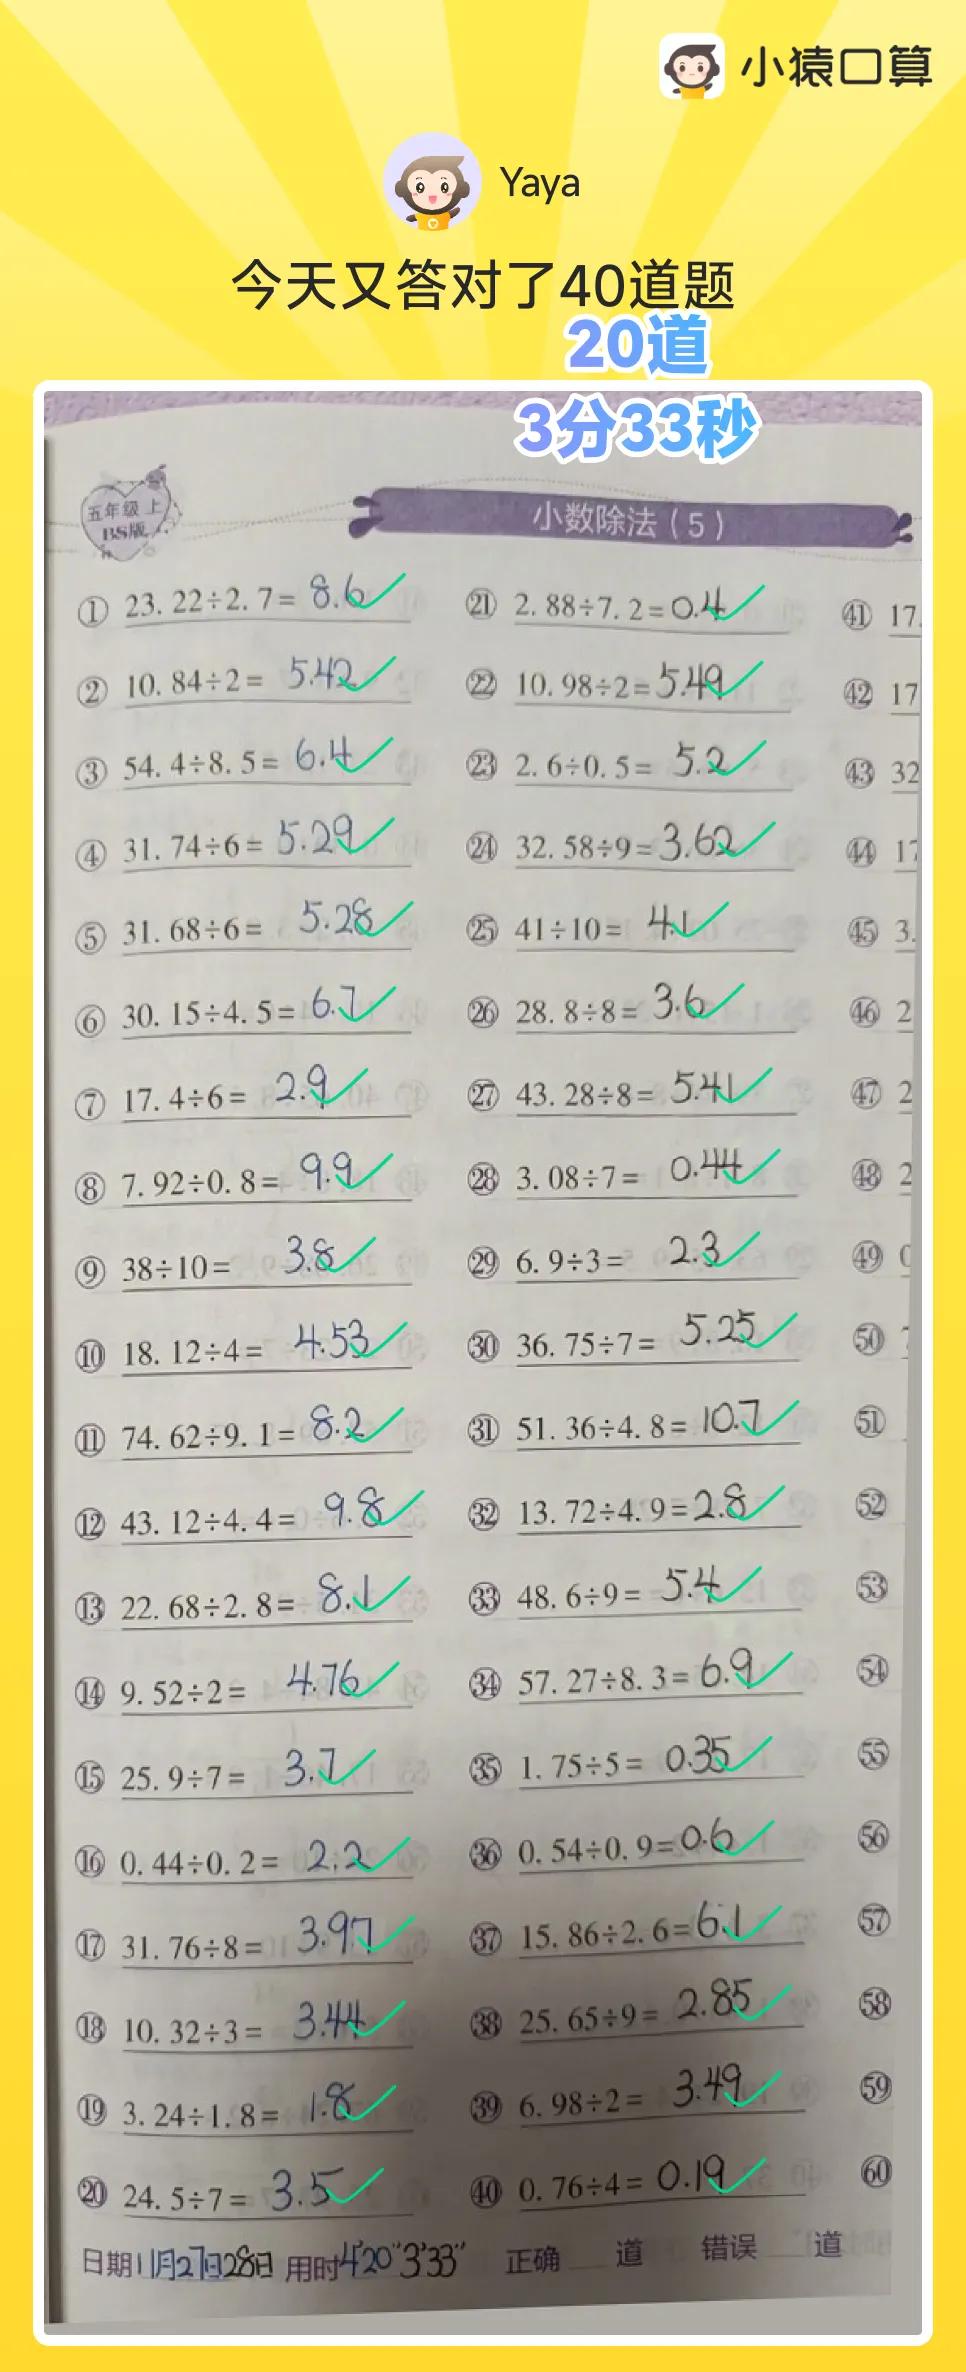 小猿口算
Yaya
今天又答对了40道题
20道
3分33秒
五年级 上
BS版
小数除法(5)
① 23.22÷2.7= 8.6
② 10.84÷2= 5.42
③ 54.4÷8.5= 6.4
④ 31.74÷6= 5.29
⑤ 31.68÷6= 5.28
⑥ 30.15÷4.5= 6.7
⑦ 17.4÷6= 2.9
⑧ 7.92÷0.8= 9.9
⑨ 38÷10= 3.8
⑩ 18.12÷4= 4.53
⑪ 74.62÷9.1= 8.2
⑫ 43.12÷4.4= 9.8
⑬ 22.68÷2.8= 8.1
⑭ 9.52÷2= 4.76
⑮ 25.9÷7= 3.7
⑯ 0.44÷0.2= 2.2
⑰ 31.76÷8= 3.97
⑱ 10.32÷3= 3.44
⑲ 3.24÷1.8= 1.8
⑳ 24.5÷7= 3.5
㉑ 2.88÷7.2= 0.4
㉒ 10.98÷2= 5.49
㉓ 2.6÷0.5= 5.2
㉔ 32.58÷9= 3.62
㉕ 41÷10= 4.1
㉖ 28.8÷8= 3.6
㉗ 43.28÷8= 5.41
㉘ 3.08÷7= 0.44
㉙ 6.9÷3= 2.3
㉚ 36.75÷7= 5.25
㉛ 51.36÷4.8= 10.7
㉜ 13.72÷4.9= 2.8
㉝ 48.6÷9= 5.4
㉞ 57.27÷8.3= 6.9
㉟ 1.75÷5= 0.35
㊱ 0.54÷0.9= 0.6
㊲ 15.86÷2.6= 6.1
㊳ 25.65÷9= 2.85
㊴ 6.98÷2= 3.49
㊵ 0.76÷4= 0.19
㊶ 17.
㊷ 17
㊸ 32
㊹ 17
㊺ 3.
㊻ 2
㊼ 2
㊽ 2
㊾ 0
㊿
51
52
53
54
55
56
57
58
59
60
日期11月27日28日 用时4'20"3'33" 正确 道 错误 道